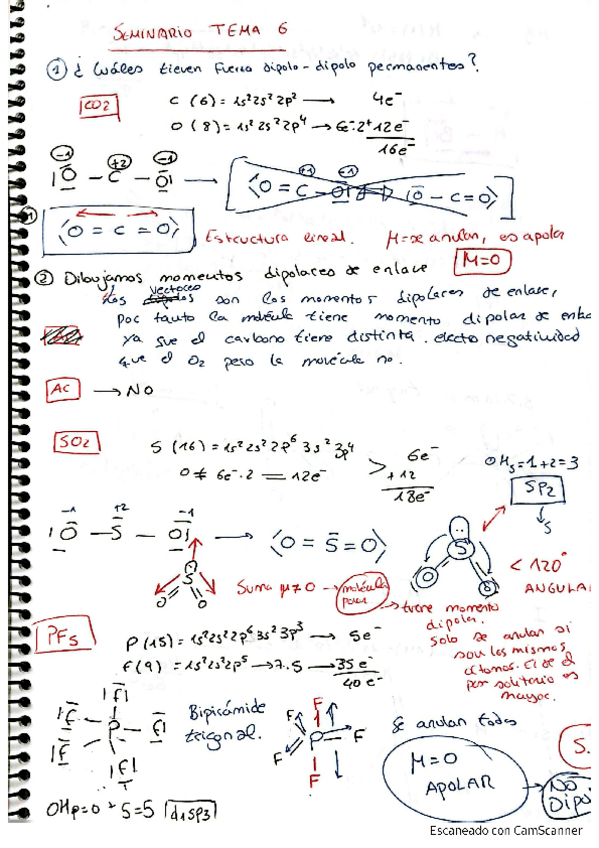 SEMINARIO TEMA 6
① ¿Cuáles tienen Fuerza Dipolo-dipolo permanentes?
CO2
C (6) = 1s² 2s² 2p² → 4e⁻
O (8) = 1s² 2s² 2p⁴ → 6e⁻·2 + 12e⁻
16e⁻
-1 +2 -1
|O - C - O| → ⟨O = C - O| ⟹ |O - C = O⟩
⟨O = C = O⟩ Estructura lineal. M=se anulan, es apolar
M=0
② Dibujamos momentos dipolares de enlace
vectores
Los son los momentos dipolares de enlace,
por tanto la molécula tiene momento dipolar de enla
ya que el carbono tiene distinta electonegatividad
que el O2 pero la molécula no.
AC → NO
SO2
S (16) = 1s² 2s² 2p⁶ 3s² 3p⁴
6e⁻
O ≠ 6e⁻·2 = 12e⁻ > + 12
18e⁻
OHs = 1+2=3
SP2
S
-1 +2 -1
|O - S - O| → ⟨O = S = O⟩
S
O O
S
O O
< 120°
ANGULA
Suma μ≠0 → molécula polar
→ tiene momento
dipolar.
Solo se anulan si
son los mismos
átomos. El de el
par solitario es
mayor.
PF5
P (15) = 1s² 2s² 2p⁶ 3s² 3p³ → 5e⁻
F (9) = 1s² 2s² 2p⁵ → 7·5 → 35 e⁻
40 e⁻
|F| F| |F P F| |F |F|
Bipirámide
trigonal.
F F F P F F
Se anulan todos
M=0
APOLAR
NO
Dipo
S.
OHp=0+5=5 d1sp3
Escaneado con CamScanner